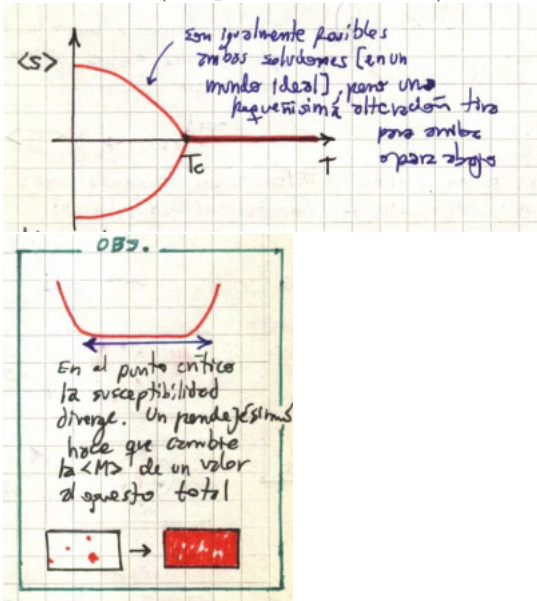 <s>
son igualmente posibles
ambas soluciones [en un
mundo ideal], pero una
pequeñisima alteración tira
para arriba
o para abajo
Tc
T
OBS.
En el punto crítico
la susceptibilidad
diverge. Un pendejésimo
hace que cambie
la <M> de un valor
al opuesto total